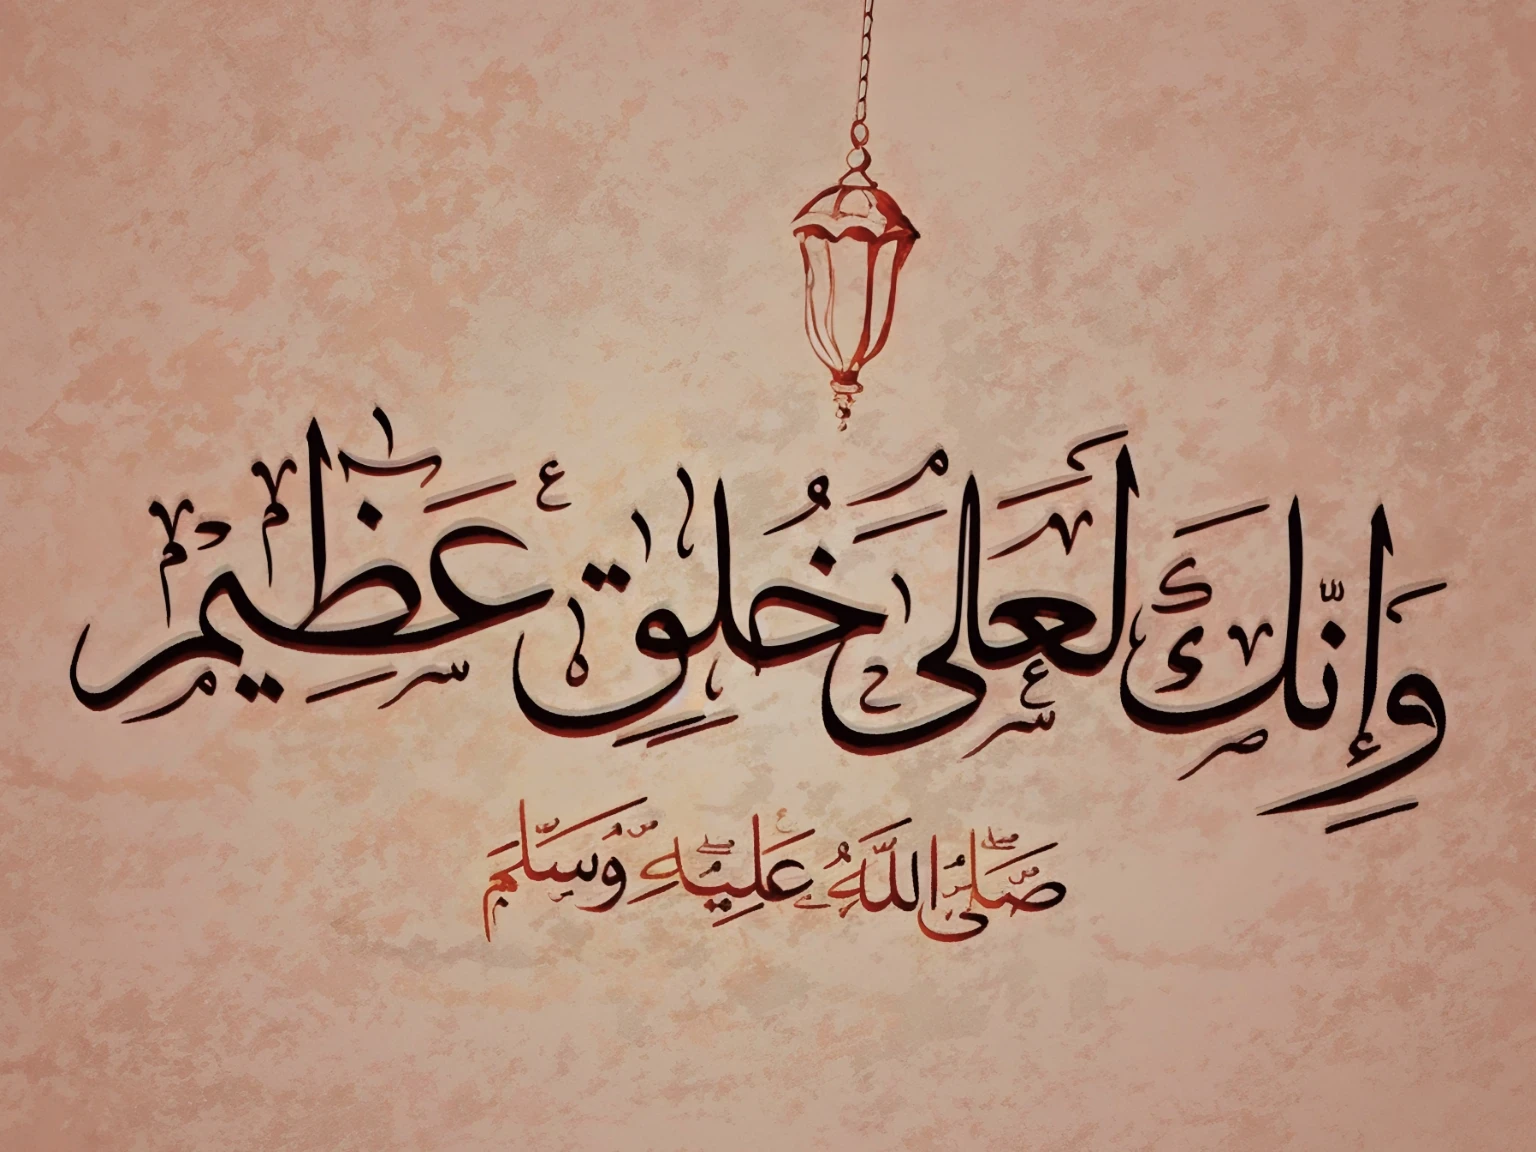 وَإِنَّكَ لَعَلَىٰ خُلُقٍ عَظِيمٍ
صَلَّى اللَّهُ عَلَيْهِ وَسَلَّمَ